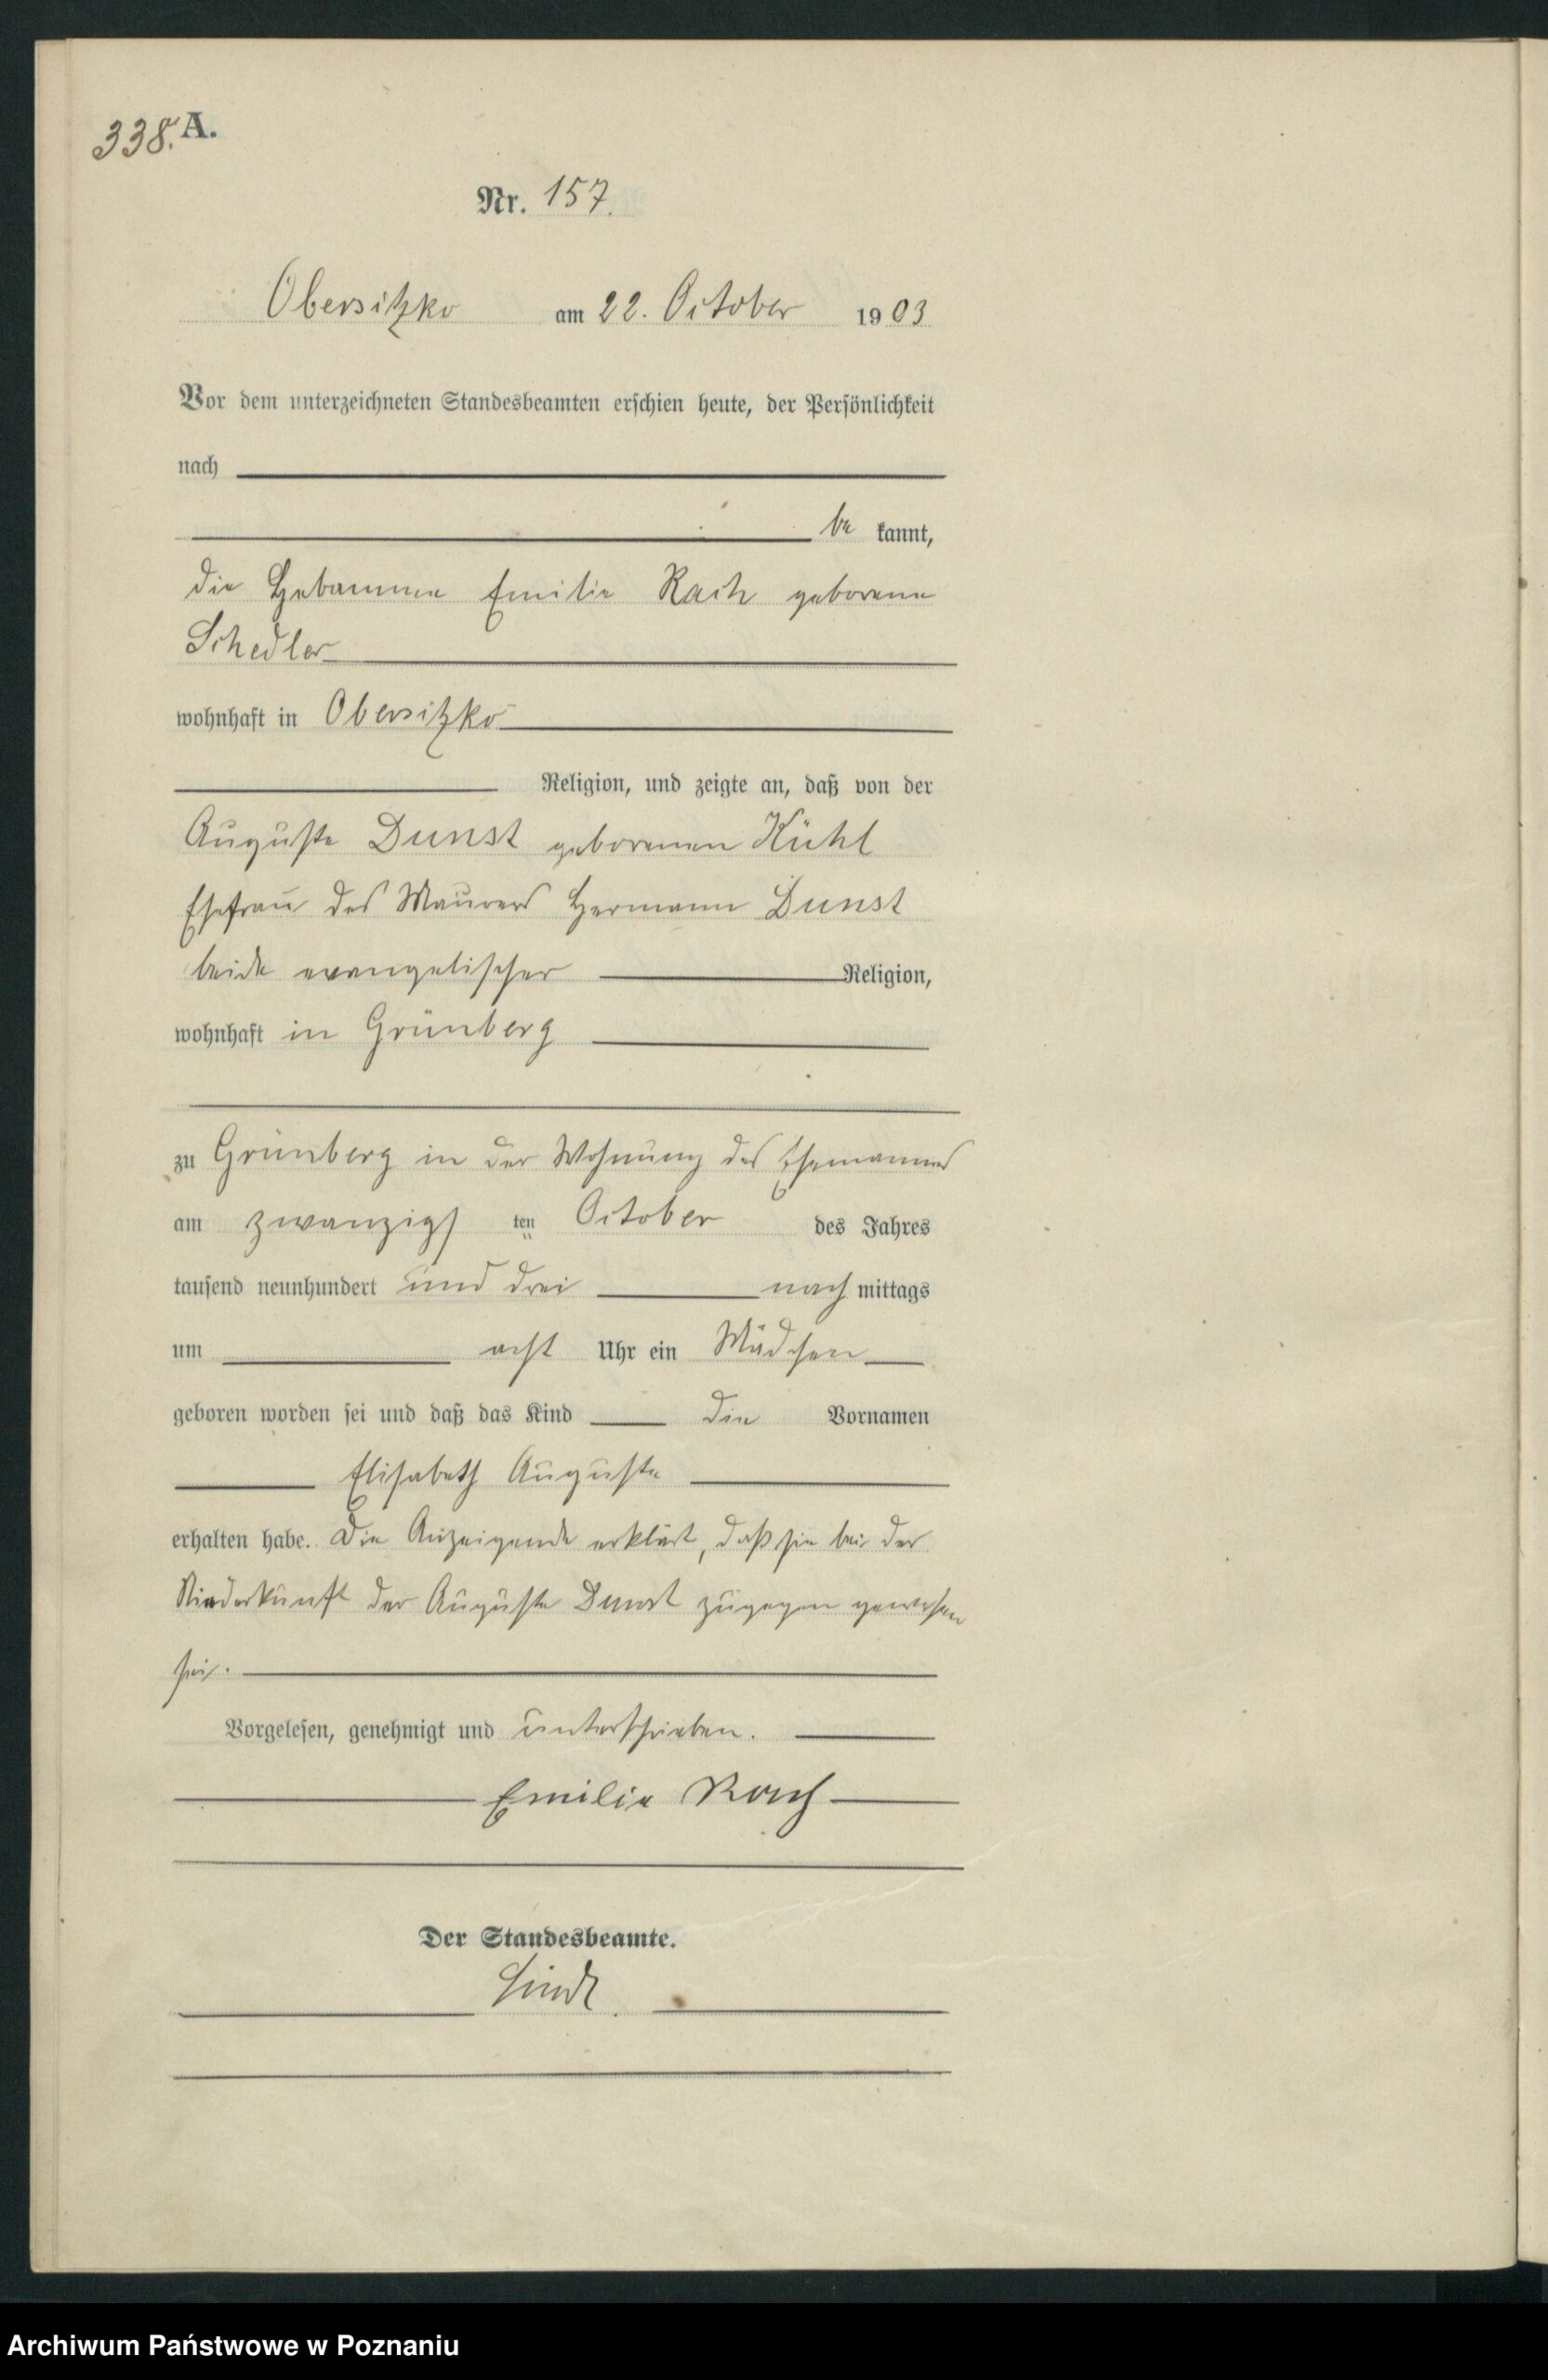 338. A.
Nr. 157.
Obersitzko am 22. October 1903
Vor dem unterzeichneten Standesbeamten erschien heute, der Persönlichkeit
nach
be kannt,
die Hebamme Emilie Rach geborene
Schedler
wohnhaft in Obersitzko
Religion, und zeigte an, daß von der
Auguste Dunst geborenen Kühl
Ehefrau des Maurers Hermann Dunst
beide evangelischer Religion,
wohnhaft in Grünberg
zu Grünberg in der Wohnung des Ehemannes
am zwanzigs ten October des Jahres
tausend neunhundert und drei nach mittags
um acht Uhr ein Mädchen
geboren worden sei und daß das Kind die Vornamen
Elisabeth Auguste
erhalten habe. Die Anzeigende erklärt, daß sie bei der
Niederkunft der Auguste Dunst zugegen gewesen
sei.
Vorgelesen, genehmigt und unterschrieben.
Emilie Rach
Der Standesbeamte.
Archiwum Państwowe w Poznaniu